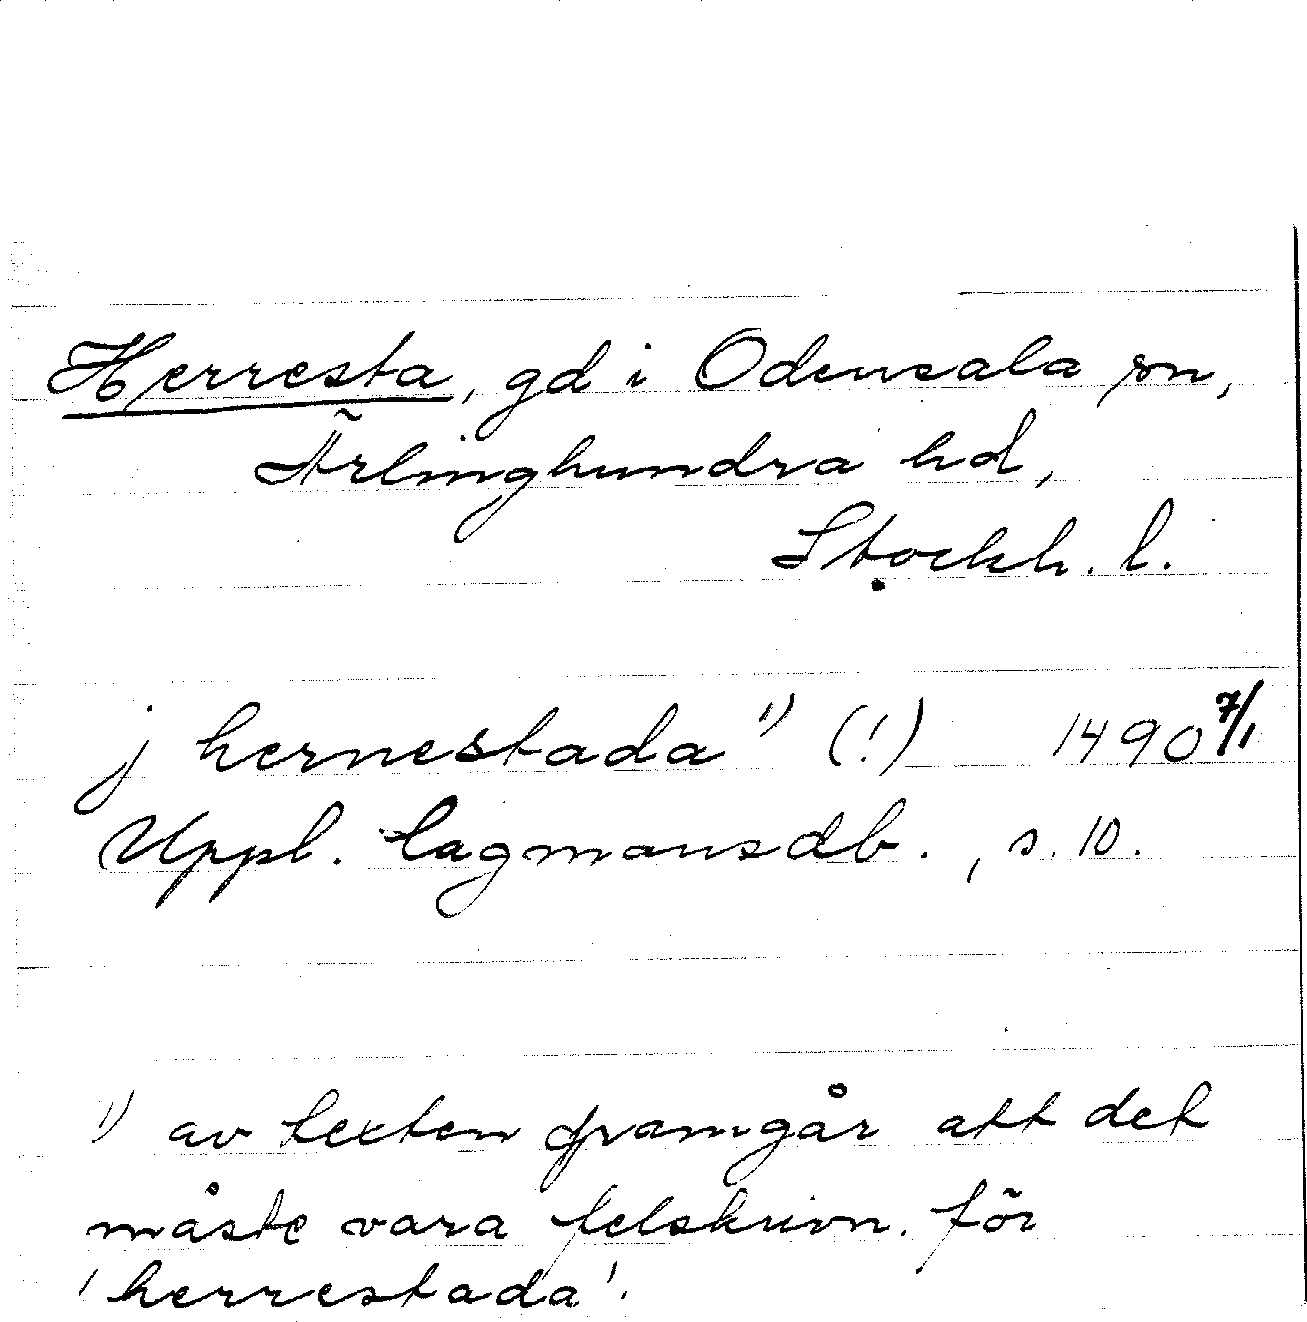 Herresta, gd i Odensala sn,
Ärlinghundra hd,
Stockh. l.
j hernestada 1) (!) 1490 7/1
Uppl. lagmansdb., s. 10.
1) av texten framgår att det
måste vara felskrivn. för
'herrestada'.